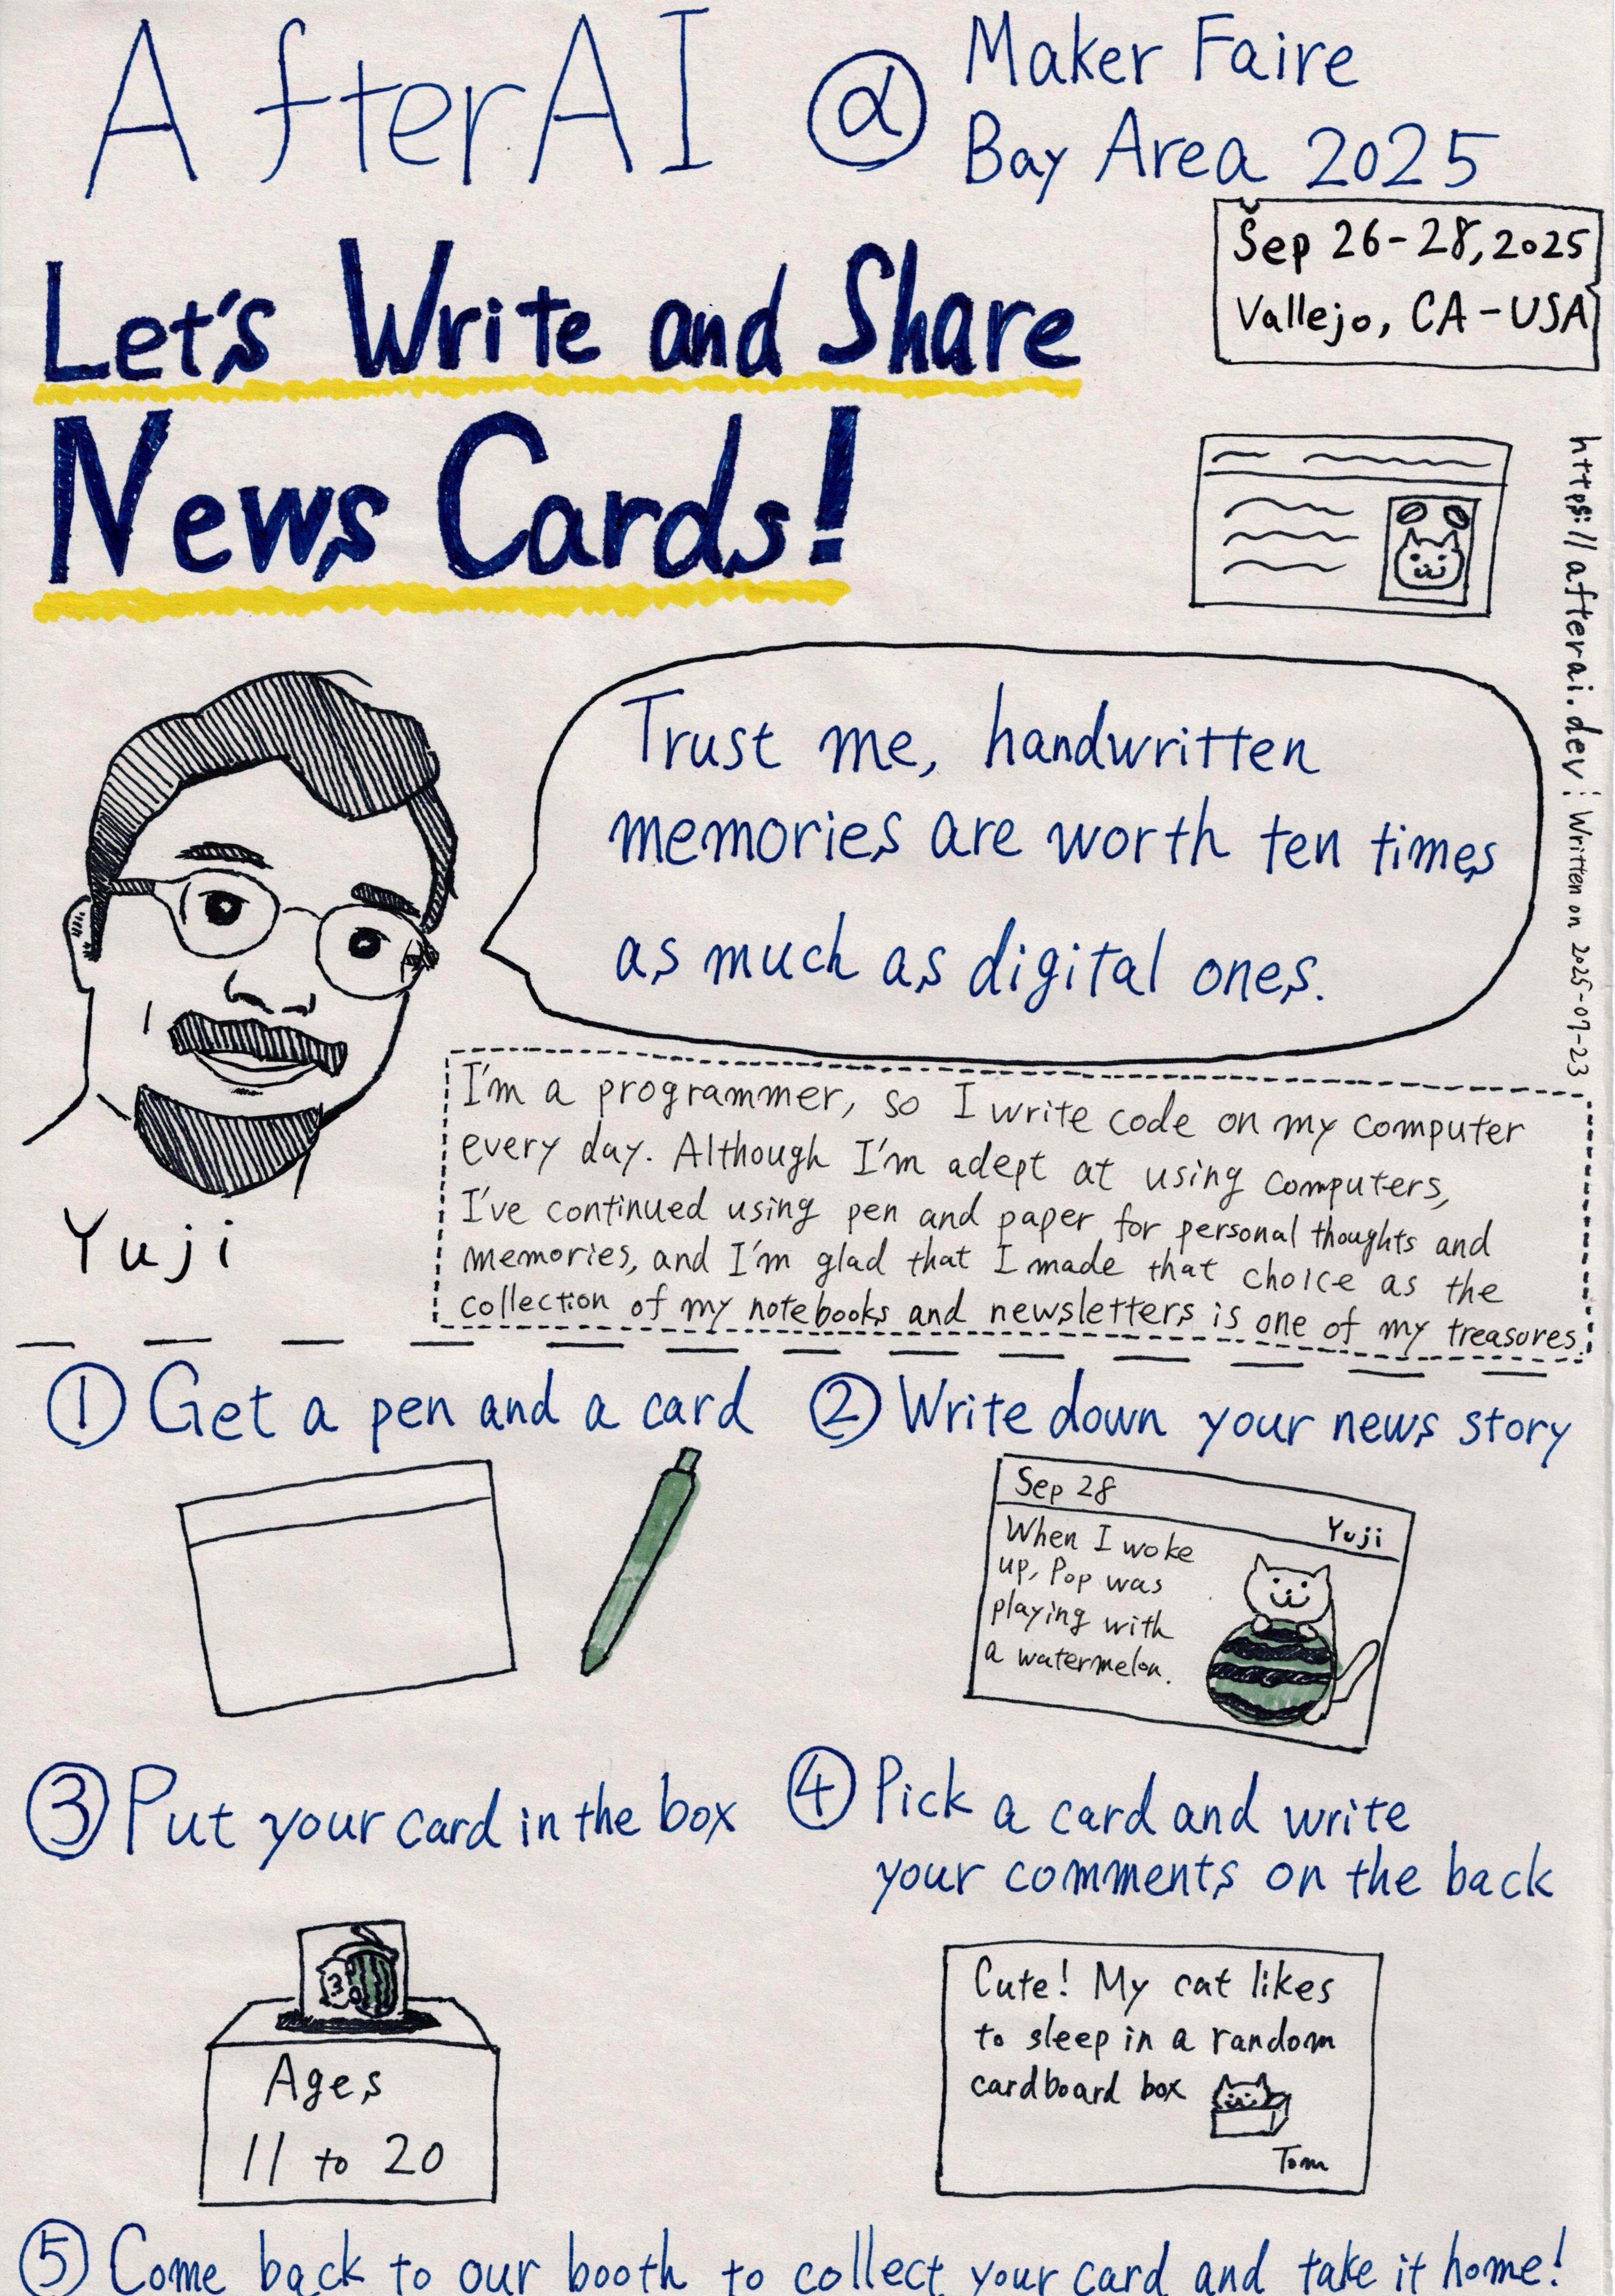 AfterAI @ Maker Faire
Bay Area 2025
Sep 26-28, 2025
Vallejo, CA - USA
Let's Write and Share
News Cards!
https://afterai.dev | Written on 2025-07-23
Trust me, handwritten
memories are worth ten times
as much as digital ones.
Yuji
I'm a programmer, so I write code on my computer
every day. Although I'm adept at using computers,
I've continued using pen and paper for personal thoughts and
memories, and I'm glad that I made that choice as the
collection of my notebooks and newsletters is one of my treasures.
① Get a pen and a card
② Write down your news story
Sep 28
Yuji
When I woke
up, Pop was
playing with
a watermelon.
③ Put your card in the box
Ages
11 to 20
④ Pick a card and write
your comments on the back
Cute! My cat likes
to sleep in a random
cardboard box
Tom
⑤ Come back to our booth to collect your card and take it home!